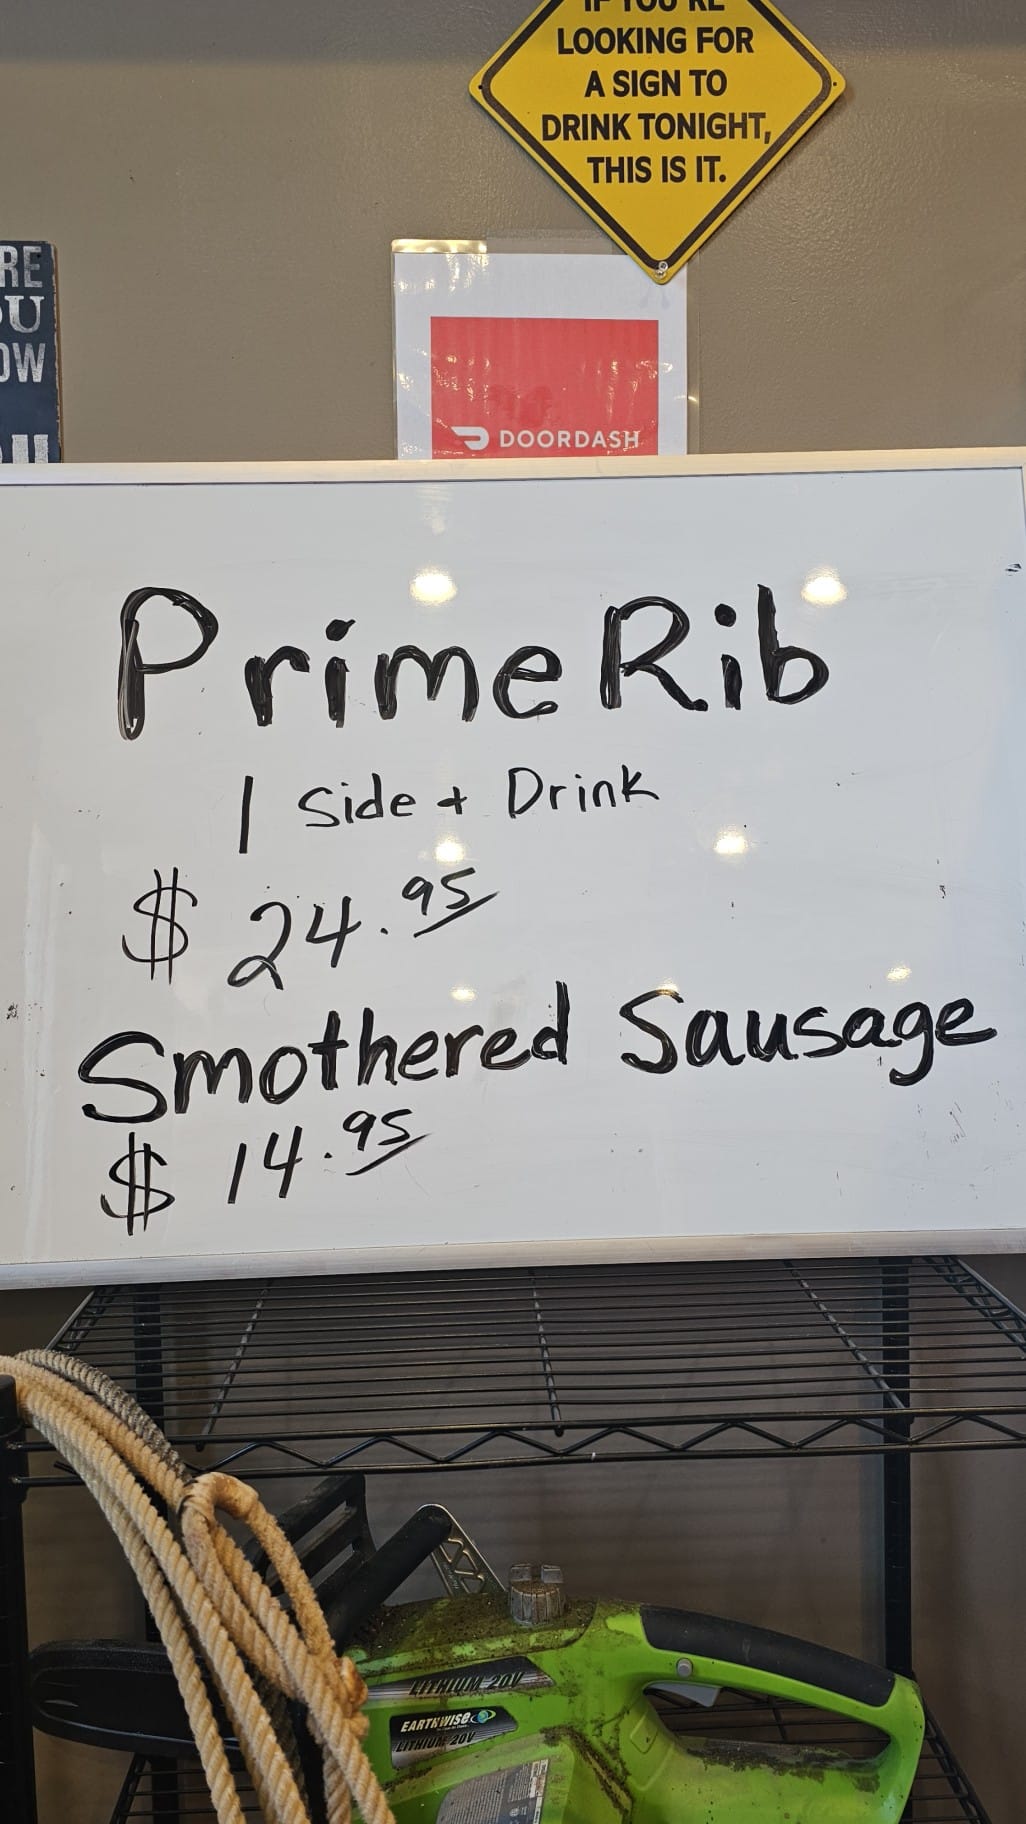 IF YOU'RE
LOOKING FOR
A SIGN TO
DRINK TONIGHT,
THIS IS IT.
RE
OU
OW
DOORDASH
Prime Rib
1 Side + Drink
$ 24.95
Smothered Sausage
$ 14.95
LITHIUM 20V
EARTHWISE
LITHIUM 20V